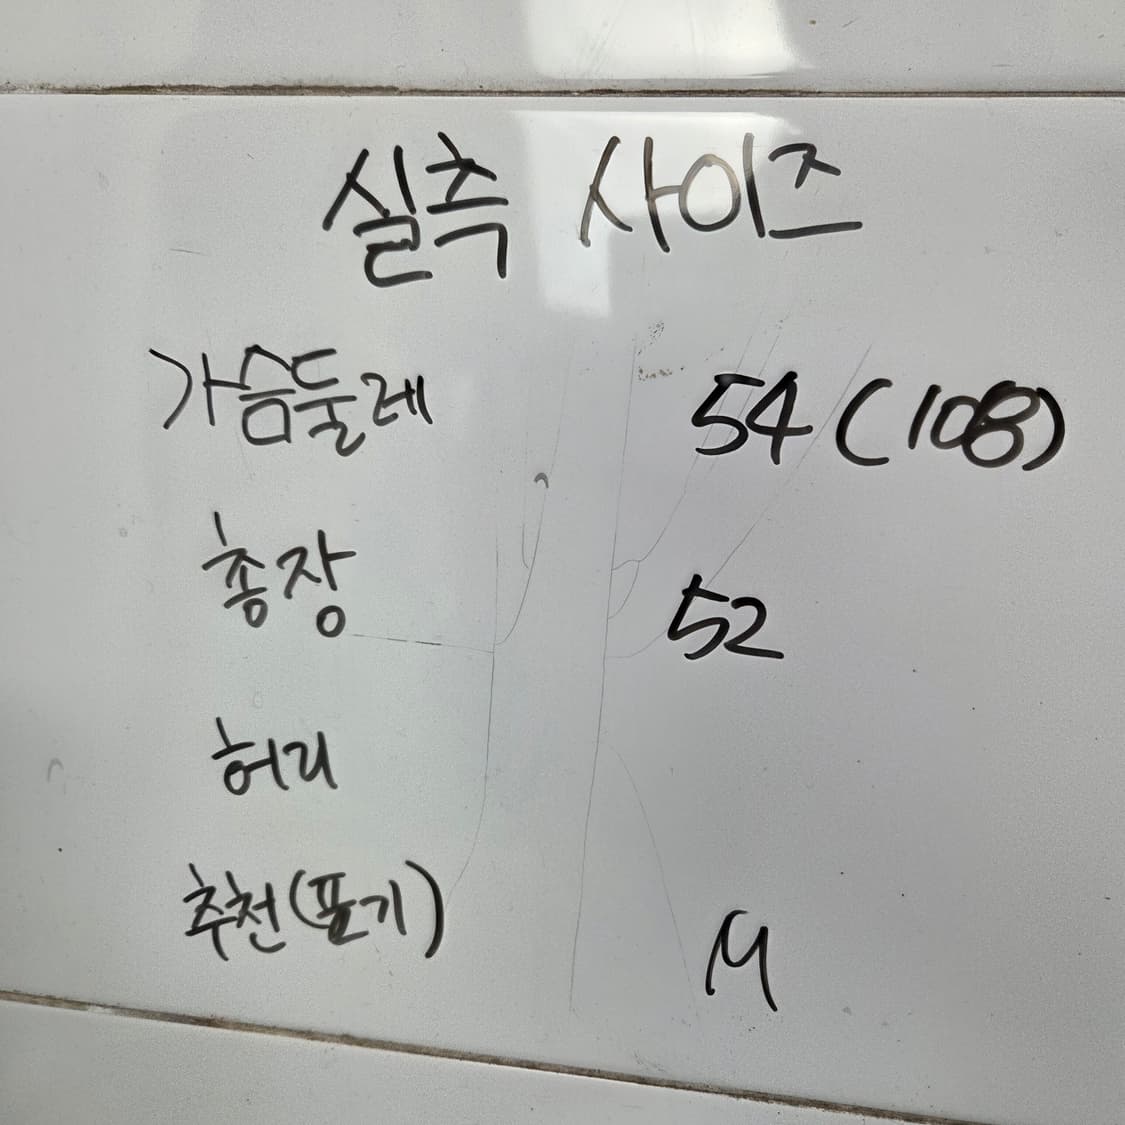 실측 사이즈
가슴둘레 54(108)
총장 52
허리
추천(표기) M